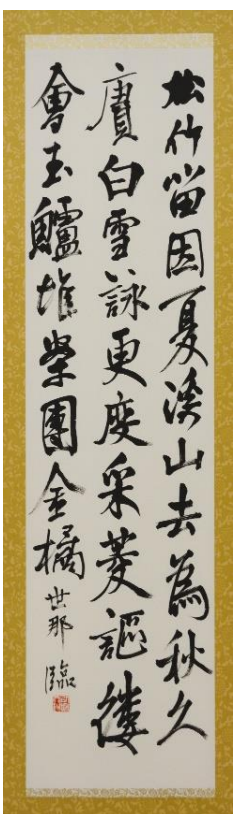 松竹留因夏溪山去為秋久
賡白雪詠更度采菱謳縷
會玉鱸堆案團金橘世那臨